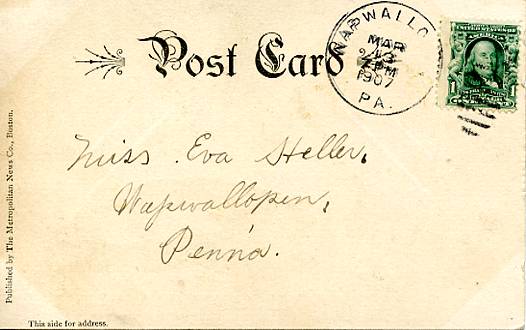 Post Card
WAPWALLO
MAR
1907
PA.
Miss Eva Heller,
Wapwallopen,
Penn'a.
Published by The Metropolitan News Co., Boston.
This side for address.